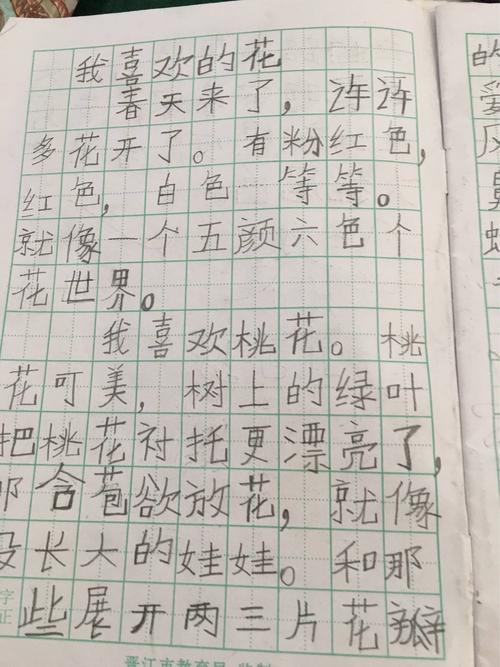 我喜欢的花
春天来了，许许
多花开了。有粉红色，
红色，白色 等等。
就像一个五颜六色个
花世界。
我喜欢桃花。桃
花可美，树上的绿叶
把桃花衬托更漂亮了，
那含苞欲放花，就像
没长大的娃娃。和那
些展开两三片花瓣
晋江市教育局
的
爱